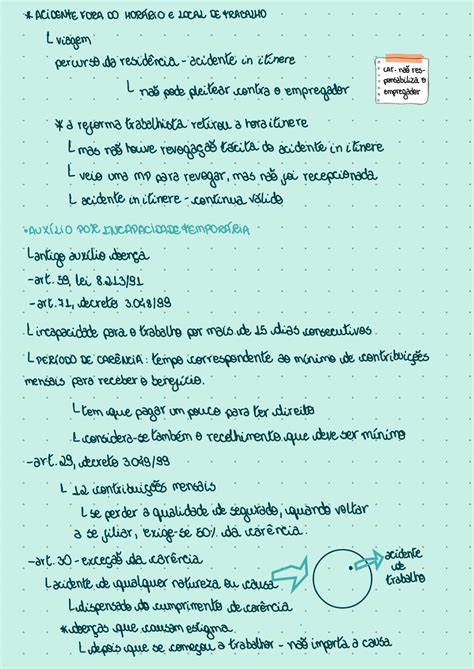 * ACIDENTE FORA DO HORÁRIO E LOCAL DE TRABALHO
L viagem
percurso da residência - acidente in itinere
L não pode pleitear contra o empregador
CAT - não res-
ponsabiliza o
empregador
* a reforma trabalhista retirou a hora itinere
L mas não houve revogação tácita do acidente in itinere
L veio uma MP para revogar, mas não foi recepcionada
L acidente in itinere - continua válido
• AUXÍLIO POR INCAPACIDADE TEMPORÁRIA
L antigo auxílio doença
- art. 59, lei 8.213/91
- art. 71, decreto 3.048/99
L incapacidade para o trabalho por mais de 15 dias consecutivos.
L PERÍODO DE CARÊNCIA: tempo correspondente ao mínimo de contribuições
mensais para receber o benefício.
L tem que pagar um pouco para ter direito
L considera-se também o recolhimento que deve ser mínimo
- art. 29, decreto 3.048/99
L 12 contribuições mensais
L se perder a qualidade de segurado, quando voltar
a se filiar, exige-se 50% da carência.
- art. 30 - exceção da carência
L acidente de qualquer natureza ou causa
acidente
de
trabalho
L dispensado do cumprimento de carência
* doenças que causam estigma
L depois que se começou a trabalhar - não importa a causa